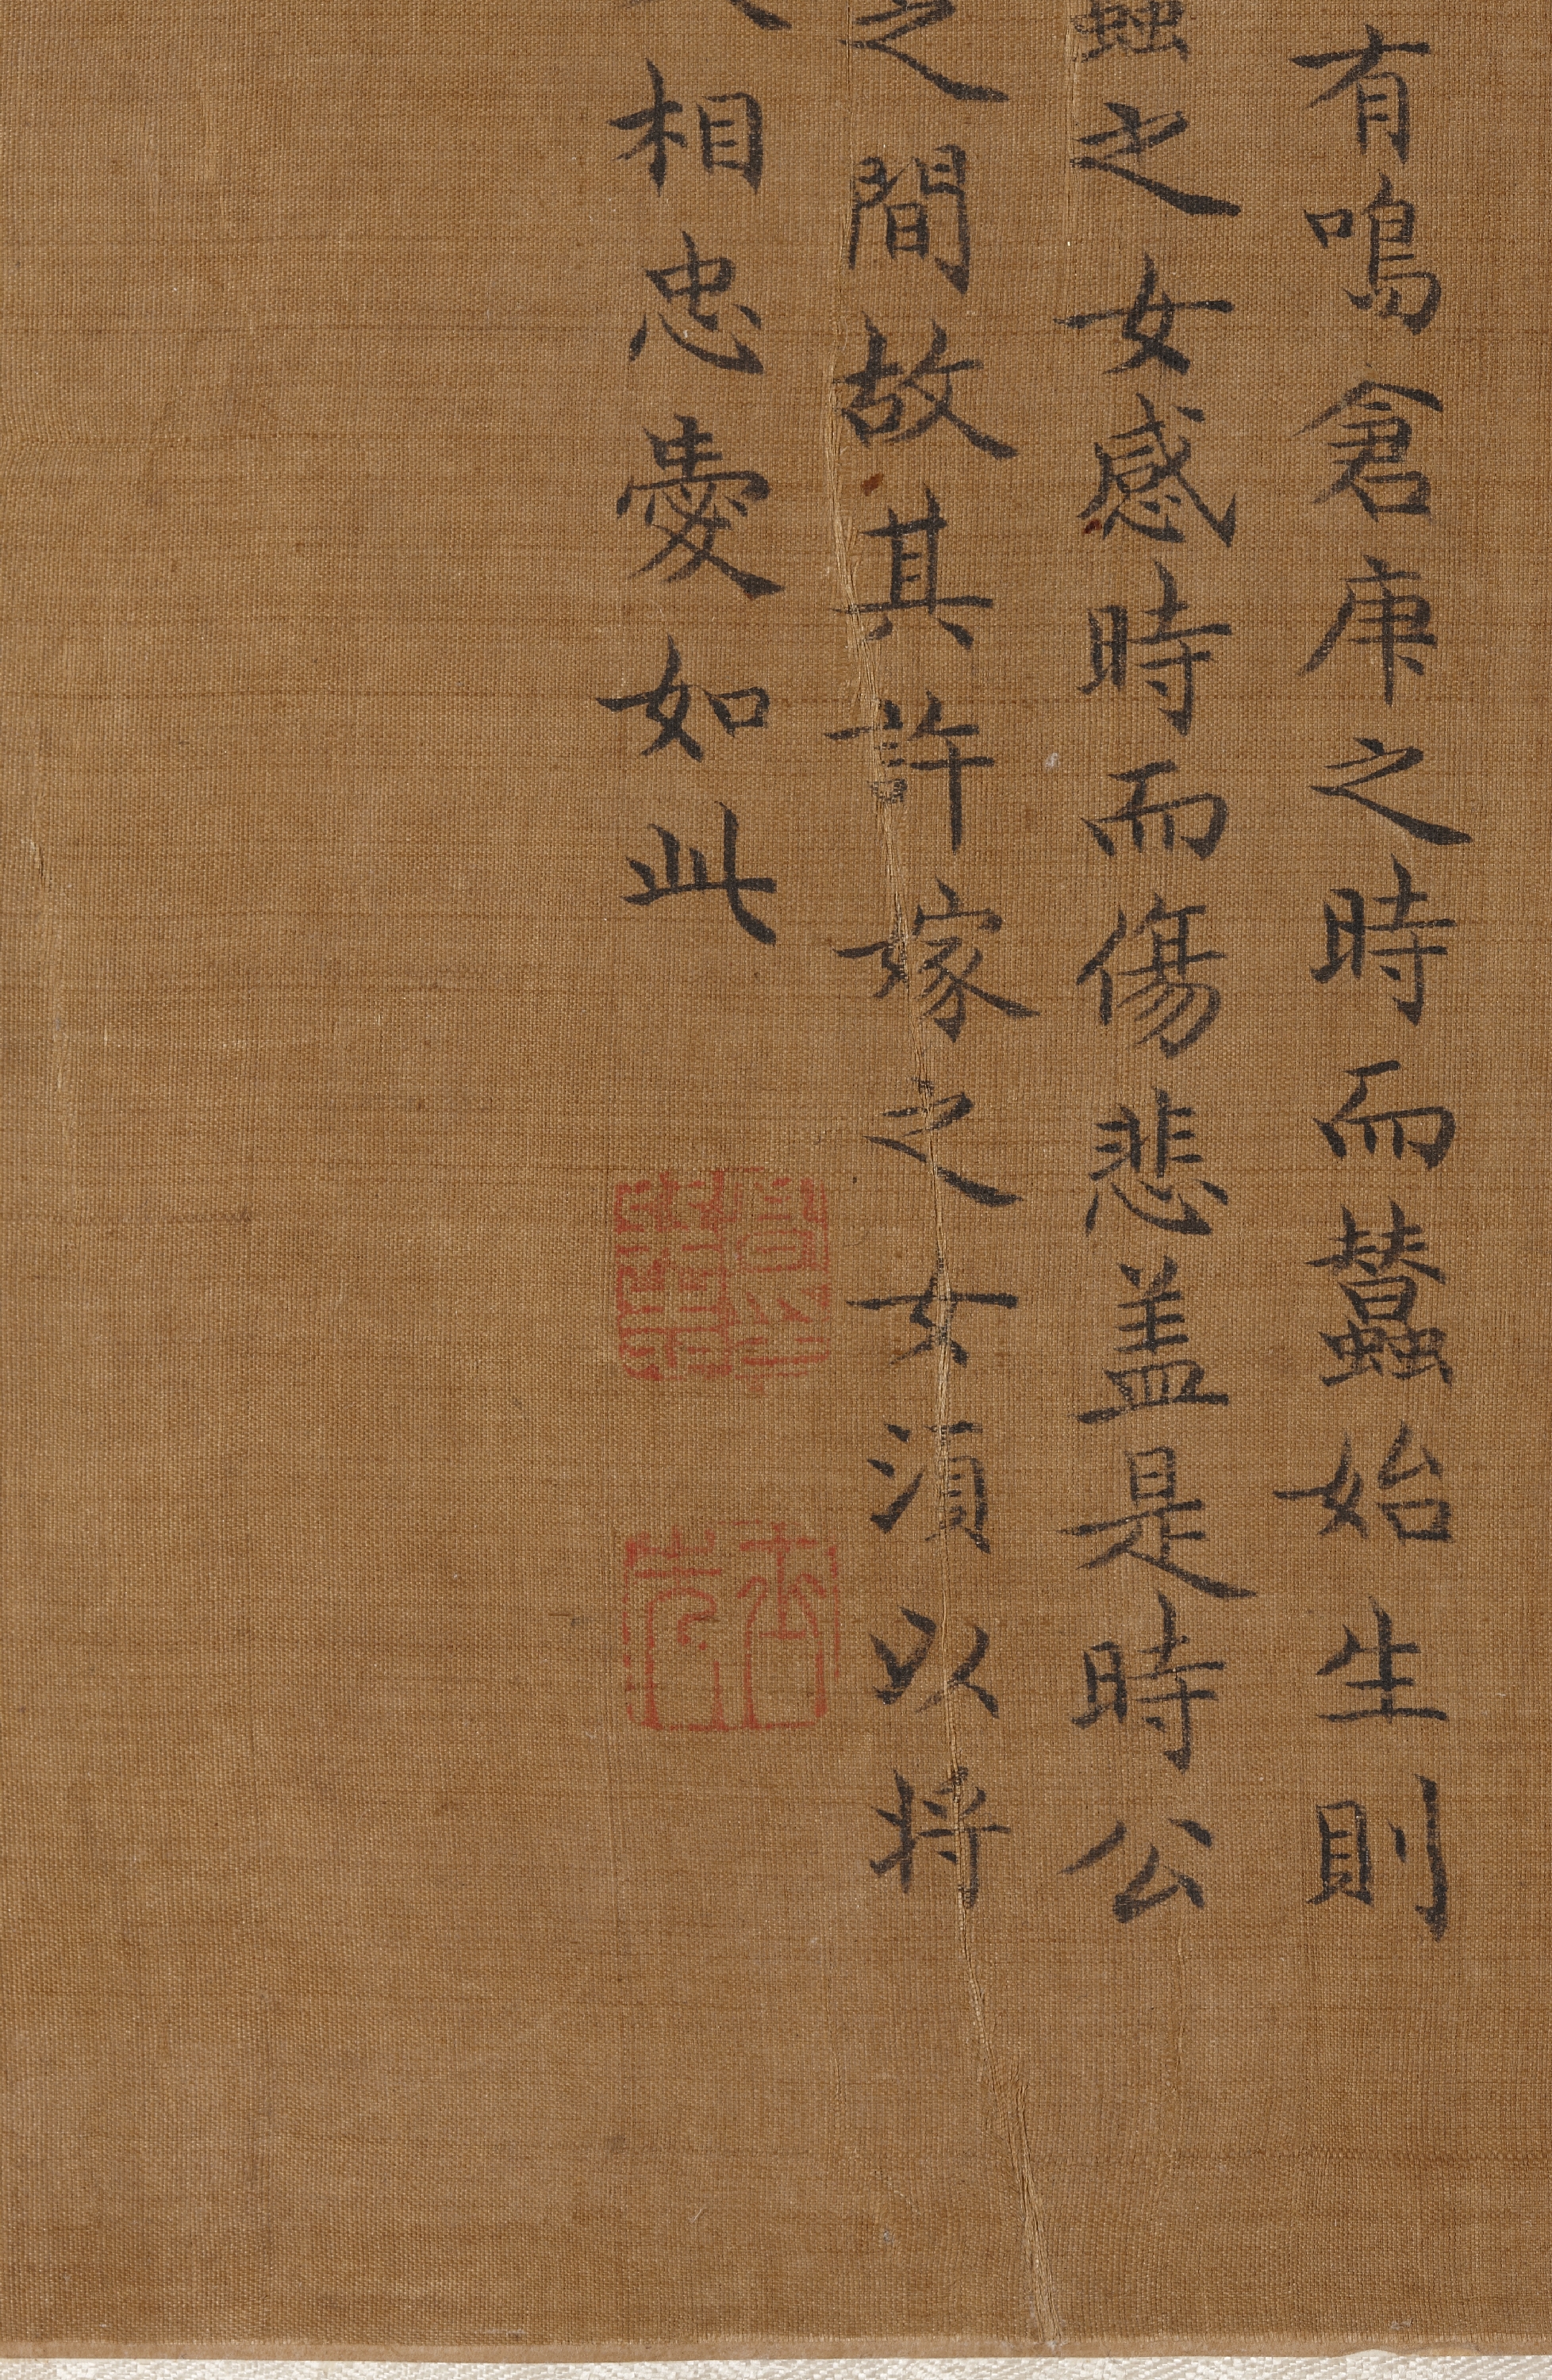 有鳴倉庚之時而蠶始生則
蠶之女感時而傷悲盖是時公
之間故其許嫁之女須以将
相忠愛如此